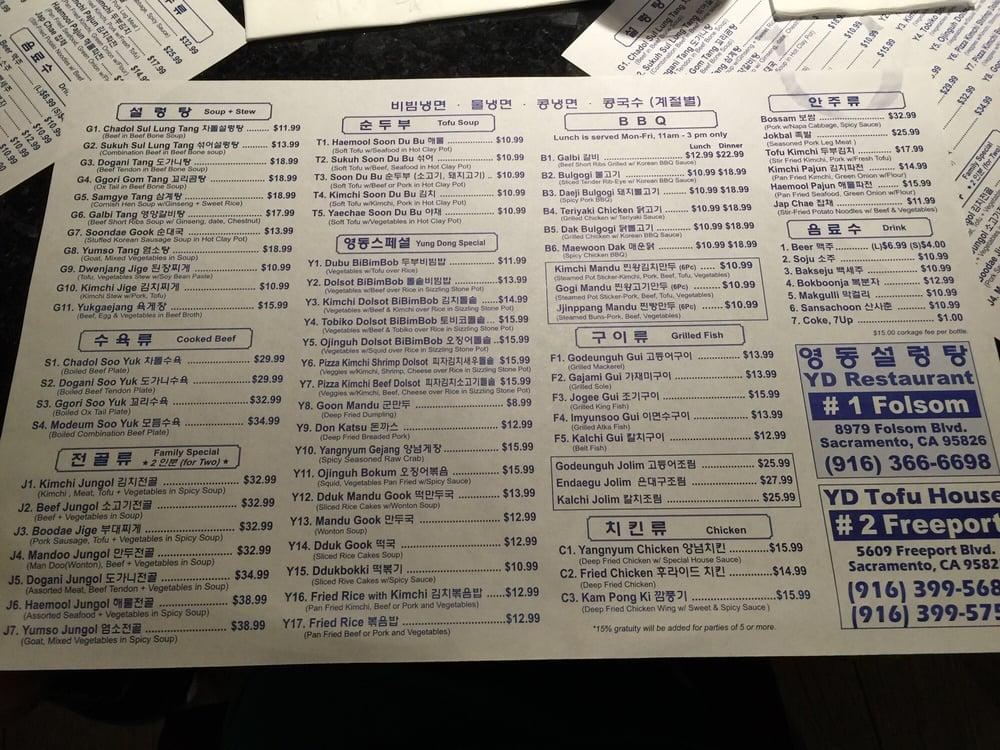 설렁탕 Soup + Stew
G1. Chadol Sul Lung Tang 차돌설렁탕 ......... $11.99
(Beef in Beef Bone Soup)
G2. Sukuh Sul Lung Tang 섞어설렁탕 ......... $13.99
(Combination Beef in Beef Bone Soup)
G3. Dogani Tang 도가니탕 ......... $18.99
(Beef Tendon in Beef Bone Soup)
G4. Ggori Gom Tang 꼬리곰탕 ......... $18.99
(Ox Tail in Beef Bone Soup)
G5. Samgye Tang 삼계탕 ......... $18.99
(Cornish Hen Soup w/Ginseng + Sweet Rice)
G6. Galbi Tang 영양갈비탕 ......... $17.99
(Beef Short Ribs Soup w/ Ginseng, date, Chestnut)
G7. Soondae Gook 순대국 ......... $13.99
(Stuffed Korean Sausage Soup in Hot Clay Pot)
G8. Yumso Tang 염소탕 ......... $18.99
(Goat, Mixed Vegetables in Soup)
G9. Dwenjang Jige 된장찌개 ......... $10.99
(Tofu, Vegetables Stew w/Soy Bean Paste)
G10. Kimchi Jige 김치찌개 ......... $10.99
(Kimchi Stew w/Pork, Tofu)
G11. Yukgaejang 육개장 ......... $15.99
(Beef, Egg & Vegetables in Beef Broth)
수육류 Cooked Beef
S1. Chadol Soo Yuk 차돌수육 ......... $29.99
(Boiled Beef Plate)
S2. Dogani Soo Yuk 도가니수육 ......... $29.99
(Boiled Beef Tendon Plate)
S3. Ggori Soo Yuk 꼬리수육 ......... $32.99
(Boiled Ox Tail Plate)
S4. Modeum Soo Yuk 모듬수육 ......... $34.99
(Boiled Combination Beef Plate)
전골류 Family Special
★ 2 인분 (for Two) ★
J1. Kimchi Jungol 김치전골 ......... $32.99
(Kimchi , Meat, Tofu + Vegetables in Spicy Soup)
J2. Beef Jungol 소고기전골 ......... $32.99
(Beef + Vegetables in Soup)
J3. Boodae Jige 부대찌개 ......... $32.99
(Pork Sausage, Tofu + Vegetables in Spicy Soup)
J4. Mandoo Jungol 만두전골 ......... $32.99
(Man Doo(Wonton), Beef + Vegetables in Soup)
J5. Dogani Jungol 도가니전골 ......... $34.99
(Assorted Meat, Beef Tendon + Vegetables in Soup)
J6. Haemool Jungol 해물전골 ......... $38.99
(Assorted Seafood + Vegetables in Spicy Soup)
J7. Yumso Jungol 염소전골 ......... $38.99
(Goat, Mixed Vegetables in Spicy Soup)
비빔냉면 · 물냉면 · 콩냉면 · 콩국수 (계절별)
순두부 Tofu Soup
T1. Haemool Soon Du Bu 해물 ......... $10.99
(Soft Tofu w/Seafood in Hot Clay Pot)
T2. Sukuh Soon Du Bu 섞어 ......... $10.99
(Soft Tofu w/Beef, Seafood in Hot Clay Pot)
T3. Soon Du Bu 순두부 (소고기, 돼지고기) .. $10.99
(Soft Tofu w/Beef or Pork in Hot Clay Pot)
T4. Kimchi Soon Du Bu 김치 ......... $10.99
(Soft Tofu w/Kimchi, Pork in Hot Clay Pot)
T5. Yaechae Soon Du Bu 야채 ......... $10.99
(Soft Tofu w/Vegetables in Hot Clay Pot)
영동스페셜 Yung Dong Special
Y1. Dubu BiBimBob 두부비빔밥 ......... $11.99
(Vegetables w/Tofu over Rice)
Y2. Dolsot BiBimBob 돌솥비빔밥 ......... $13.99
(Vegetables w/Beef over Rice in Sizzling Stone Pot)
Y3. Kimchi Dolsot BiBimBob 김치돌솥 ......... $14.99
(Vegetables w/Beef & Kimchi over Rice in Sizzling Stone Pot)
Y4. Tobiko Dolsot BiBimBob 토비코돌솥 ... $15.99
(Vegetables w/Beef & Tobiko over Rice in Sizzling Stone Pot)
Y5. Ojinguh Dolsot BiBimBob 오징어돌솥 ..$15.99
(Vegetables w/Squid over Rice in Sizzling Stone Pot)
Y6. Pizza Kimchi Shrimp Dolsot 피자김치새우돌솥 $15.99
(Veggies w/Kimchi, Shrimp, Cheese over Rice in Sizzling Stone Pot)
Y7. Pizza Kimchi Beef Dolsot 피자김치소고기돌솥 $15.99
(Veggies w/Kimchi, Beef, Cheese over Rice in Sizzling Stone Pot)
Y8. Goon Mandu 군만두 ......... $8.99
(Deep Fried Dumpling)
Y9. Don Katsu 돈까스 ......... $12.99
(Deep Fried Breaded Pork)
Y10. Yangnyum Gejang 양념게장 ......... $15.99
(Spicy Seasoned Raw Crab)
Y11. Ojinguh Bokum 오징어볶음 ......... $15.99
(Squid, Vegetables Pan Fried w/Spicy Sauce)
Y12. Dduk Mandu Gook 떡만두국 ......... $13.99
(Sliced Rice Cakes w/Wonton Soup)
Y13. Mandu Gook 만두국 ......... $12.99
(Wonton Soup)
Y14. Dduk Gook 떡국 ......... $12.99
(Sliced Rice Cakes Soup)
Y15. Ddukbokki 떡볶기 ......... $10.99
(Sliced Rive Cakes w/Spicy Sauce)
Y16. Fried Rice with Kimchi 김치볶음밥 ......... $12.99
(Pan Fried Kimchi, Beef or Pork and Vegetables)
Y17. Fried Rice 볶음밥 ......... $12.99
(Pan Fried Beef or Pork and Vegetables)
BBQ
Lunch is served Mon-Fri, 11am - 3 pm only
Lunch Dinner
B1. Galbi 갈비 ......... $12.99 $22.99
(Beef Short Ribs Grilled w/ Korean BBQ Sauce)
B2. Bulgogi 불고기 ......... $10.99 $18.99
(Sliced Tender Rib-Eye w/ Korean BBQ Sauce)
B3. Daeji Bulgogi 돼지불고기 ......... $10.99 $18.99
(Spicy Pork BBQ)
B4. Teriyaki Chicken 닭고기 ......... $10.99 $18.99
(Grilled Chicken w/ Teriyaki Sauce)
B5. Dak Bulgogi 닭불고기 ......... $10.99 $18.99
(Grilled Chicken w/ Korean BBQ Sauce)
B6. Maewoon Dak 매운닭 ......... $10.99 $18.99
(Spicy Chicken BBQ)
Kimchi Mandu 찐왕김치만두 (6Pc) ......... $10.99
(Steamed Pot Sticker-Kimchi, Pork, Beef, Tofu, Vegetables)
Gogi Mandu 찐왕고기만두 (6Pc) ......... $10.99
(Steamed Pot Sticker-Pork, Beef, Tofu, Vegetables)
Jjinppang Mandu 찐빵만두 (6Pc) ......... $10.99
(Steamed Buns-Pork, Beef, Vegetables)
구이류 Grilled Fish
F1. Godeunguh Gui 고등어구이 ......... $13.99
(Grilled Mackerel)
F2. Gajami Gui 가재미구이 ......... $13.99
(Grilled Sole)
F3. Jogee Gui 조기구이 ......... $15.99
(Grilled King Fish)
F4. Imyunsoo Gui 이면수구이 ......... $13.99
(Grilled Atka Fish)
F5. Kalchi Gui 칼치구이 ......... $12.99
(Belt Fish)
Godeunguh Jolim 고등어조림 ......... $25.99
Endaegu Jolim 은대구조림 ......... $27.99
Kalchi Jolim 칼치조림 ......... $25.99
치킨류 Chicken
C1. Yangnyum Chicken 양념치킨 ......... $15.99
(Deep Fried Chicken w/ Special House Sauce)
C2. Fried Chicken 후라이드 치킨 ......... $14.99
(Deep Fried Chicken)
C3. Kam Pong Ki 깜풍기 ......... $15.99
(Deep Fried Chicken Wing w/ Sweet & Spicy Sauce)
*15% gratuity will be added for parties of 5 or more.
안주류
Bossam 보쌈 ......... $32.99
(Pork w/Napa Cabbage, Spicy Sauce)
Jokbal 족발 ......... $25.99
(Seasoned Pork Leg Meat)
Tofu Kimchi 두부김치 ......... $17.99
(Stir Fried Kimchi, Pork w/Fresh Tofu)
Kimchi Pajun 김치파전 ......... $14.99
(Pan Fried Kimchi, Green Onion w/Flour)
Haemool Pajun 해물파전 ......... $15.99
(Pan Fried Seafood, Green Onion w/Flour)
Jap Chae 잡채 ......... $11.99
(Stir-Fried Potato Noodles w/ Beef & Vegetables)
음료수 Drink
1. Beer 맥주 ......... (L)$6.99 (S)$4.00
2. Soju 소주 ......... $10.99
3. Bakseju 백세주 ......... $10.99
4. Bokboonja 복분자 ......... $12.99
5. Makgulli 막걸리 ......... $10.99
6. Sansachoon 산사춘 ......... $10.99
7. Coke, 7Up ......... $1.00
$15.00 corkage fee per bottle.
영동설렁탕
YD Restaurant
# 1 Folsom
8979 Folsom Blvd.
Sacramento, CA 95826
(916) 366-6698
YD Tofu House
# 2 Freeport
5609 Freeport Blvd.
Sacramento, CA 9582
(916) 399-568
(916) 399-575